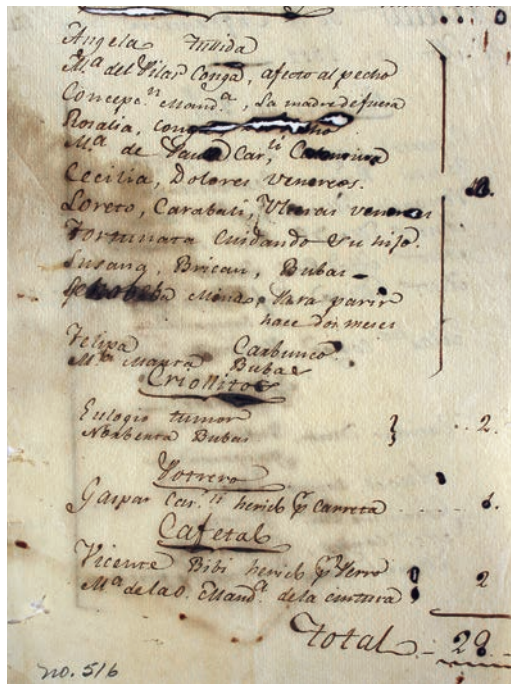 Angela Tullida
M.ª del Pilar Conga, afecto al pecho
Concepc.n Mand.ª, La madre difuera
Rosalia, Conga
M.ª de Paula Car.li
Cecilia, Dolores venereos.
Loreto, Carabali, Ulseras venereas
Fortunata Cuidando Su hijo.
Susana, Bricam, Bubas
Mina, Para parir
hace dos meses
Felipa Carbunco
M.ª Maura Bubas
Criollitos
Eulogio tumor 2.
Norberta Bubas
Potrero
Gaspar Car.li herido p Carreta ..... 1.
Cafetal
Vicente Bibi herido p.r Perro 2
M.ª de la O. Mand.ª de la cintura
Total .. 28
no. 516